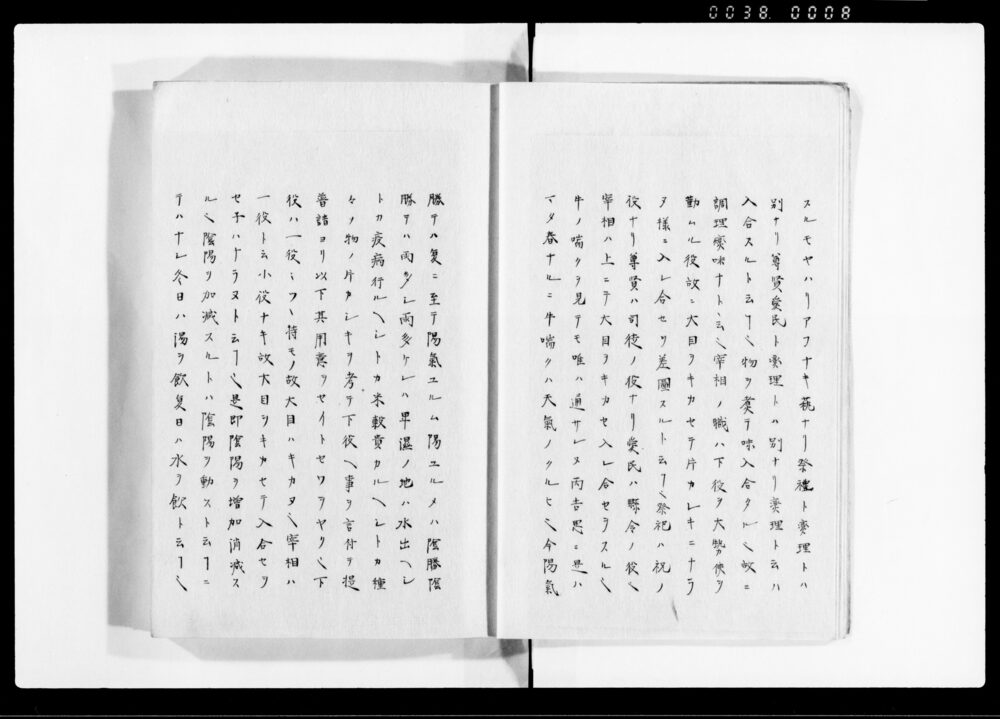 0038 0008
スルモヤハリアフナキ蓺ナリ祭禮ト燮理トハ
別ナリ尊賢愛民ト燮理トハ別ナリ燮理ト云ハ
入合スルト云フヿ也物ヲ煮テ味入合タル也故ニ
調理燮味ナトト云也宰相ノ職ハ下役ヲ大勢使ヲ
勤ムル役故ニ大目ヲキカセテ片カレキニナラ
ヌ様ニ入レ合セヲ差圖スルト云フヿ祭祀ハ祝ノ
役ナリ尊賢ハ司徒ノ役ナリ愛民ハ縣令ノ役也
宰相ハ上ニテ大目ヲキカセ入レ合セヲスル也
牛ノ喘クヲ見テモ唯ハ通サレヌ丙吉思ニ是ハ
マタ春ナルニ牛喘クハ天氣ノクルヒ也今陽氣
勝テハ夏ニ至テ陽氣ユルム陽ユルメハ陰勝陰
勝テハ雨多シ雨多ケレハ卑濕ノ地ハ水出ヘシ
トカ疫病行ルヘシトカ米穀貴カルヘシトカ種
々ノ物ノ片カレキヲ考テ下役ヘ事ヲ言付テ提
普請ヨリ以下其用意ヲセイトセワヲヤク也下
役ハ一役一ツヽ持モノ故大目ハキカヌ也宰相ハ
一役ト云小役ナキ故大目ヲキカセテ入合セヲ
セ子ハナラヌト云フヿ也是即陰陽ヲ増加消減ス
ル也陰陽ヲ加減スルトハ陰陽ヲ動ストヿ云フニ
テハナシ冬日ハ湯ヲ飲夏日ハ水ヲ飲ト云フヿ也